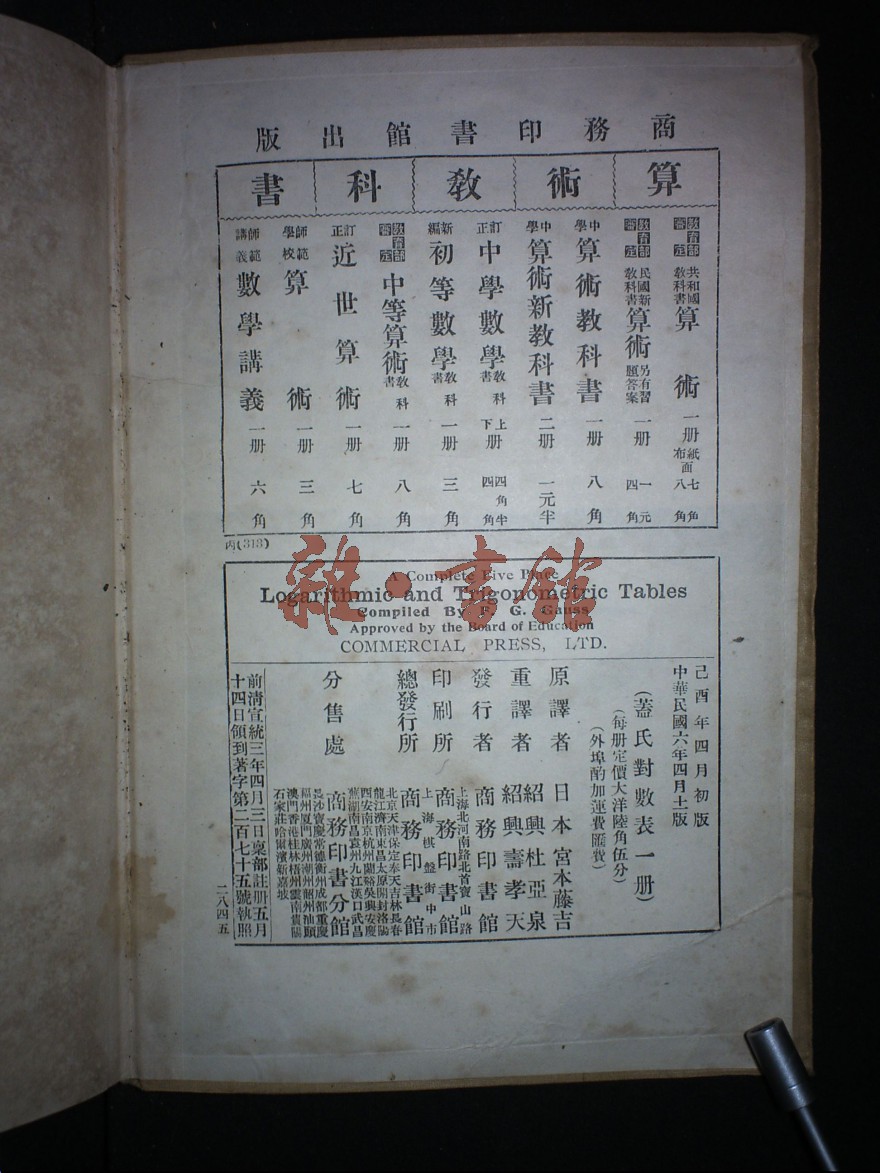 商務印書館出版
算術教科書
教育部審定 共和國教科書 算術 一册 紙面七角 布面八角
教育部審定 民國新教科書 算術 另有習題答案 一册 一元四角
中學 算術教科書 一册 八角
中學 算術新教科書 二册 一元半
訂正 中學數學教科書 上下册 四角半 四角
新編 初等數學教科書 一册 三角
教育部審定 中等算術教科書 一册 八角
訂正 近世算術 一册 七角
師範學校 算術 一册 三角
師範講義 數學講義 一册 六角
丙(313)
A Complete Five Place
Logarithmic and Trigonometric Tables
Compiled By F. G. Gauss
Approved by the Board of Education
COMMERCIAL PRESS, LTD.
己酉年四月初版
中華民國六年四月十一版
(蓋氏對數表一册)
(每册定價大洋陸角伍分)
(外埠酌加運費匯費)
原譯者 日本宮本藤吉
重譯者 紹興杜亞泉 紹興壽孝天
發行者 商務印書館
印刷所 上海北河南路北首寶山路 商務印書館
總發行所 上海棋盤街中市 商務印書館
分售處 北京天津保定奉天吉林長春
龍江濟南東昌太原開封洛陽
西安南京杭州蘭谿吳興安慶
蕪湖南昌袁州九江漢口武昌
商務印書分館
長沙寶慶常德衡州成都重慶
福州厦門廣州潮州韶州汕頭
澳門香港桂林梧州雲南貴陽
石家莊哈爾濱新嘉坡
前清宣統三年四月三日稟部註册五月
十四日領到著字第二百七十五號執照
二八四五
雜·書館